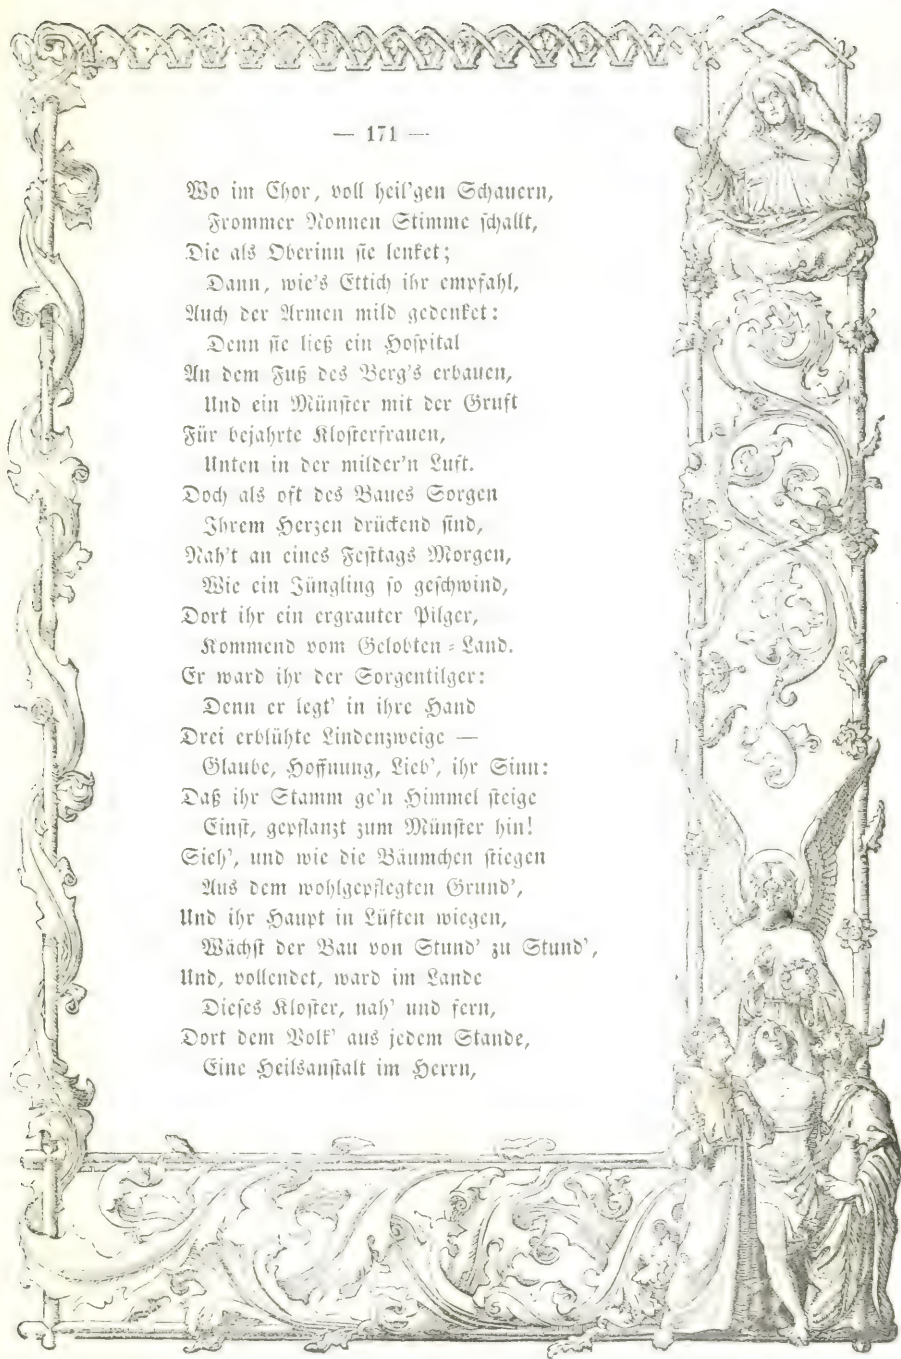 — 171 —
Wo im Chor, voll heil'gen Schauern,
Frommer Nonnen Stimme schallt,
Die als Oberinn sie lenket;
Dann, wie's Ettich ihr empfahl,
Auch der Armen mild gedenket:
Denn sie ließ ein Hospital
An dem Fuß des Berg's erbauen,
Und ein Münster mit der Gruft
Für bejahrte Klosterfrauen,
Unten in der milder'n Luft.
Doch als oft des Baues Sorgen
Ihrem Herzen drückend sind,
Nah't an eines Festtags Morgen,
Wie ein Jüngling so geschwind,
Dort ihr ein ergrauter Pilger,
Kommend vom Gelobten-Land.
Er ward ihr der Sorgentilger:
Denn er legt' in ihre Hand
Drei erblühte Lindenzweige —
Glaube, Hoffnung, Lieb', ihr Sinn:
Daß ihr Stamm ge'n Himmel steige
Einst, gepflanzt zum Münster hin!
Sieh', und wie die Bäumchen stiegen
Aus dem wohlgepflegten Grund',
Und ihr Haupt in Lüften wiegen,
Wächst der Bau von Stund' zu Stund',
Und, vollendet, ward im Lande
Dieses Kloster, nah' und fern,
Dort dem Volk' aus jedem Stande,
Eine Heilsanstalt im Herrn,